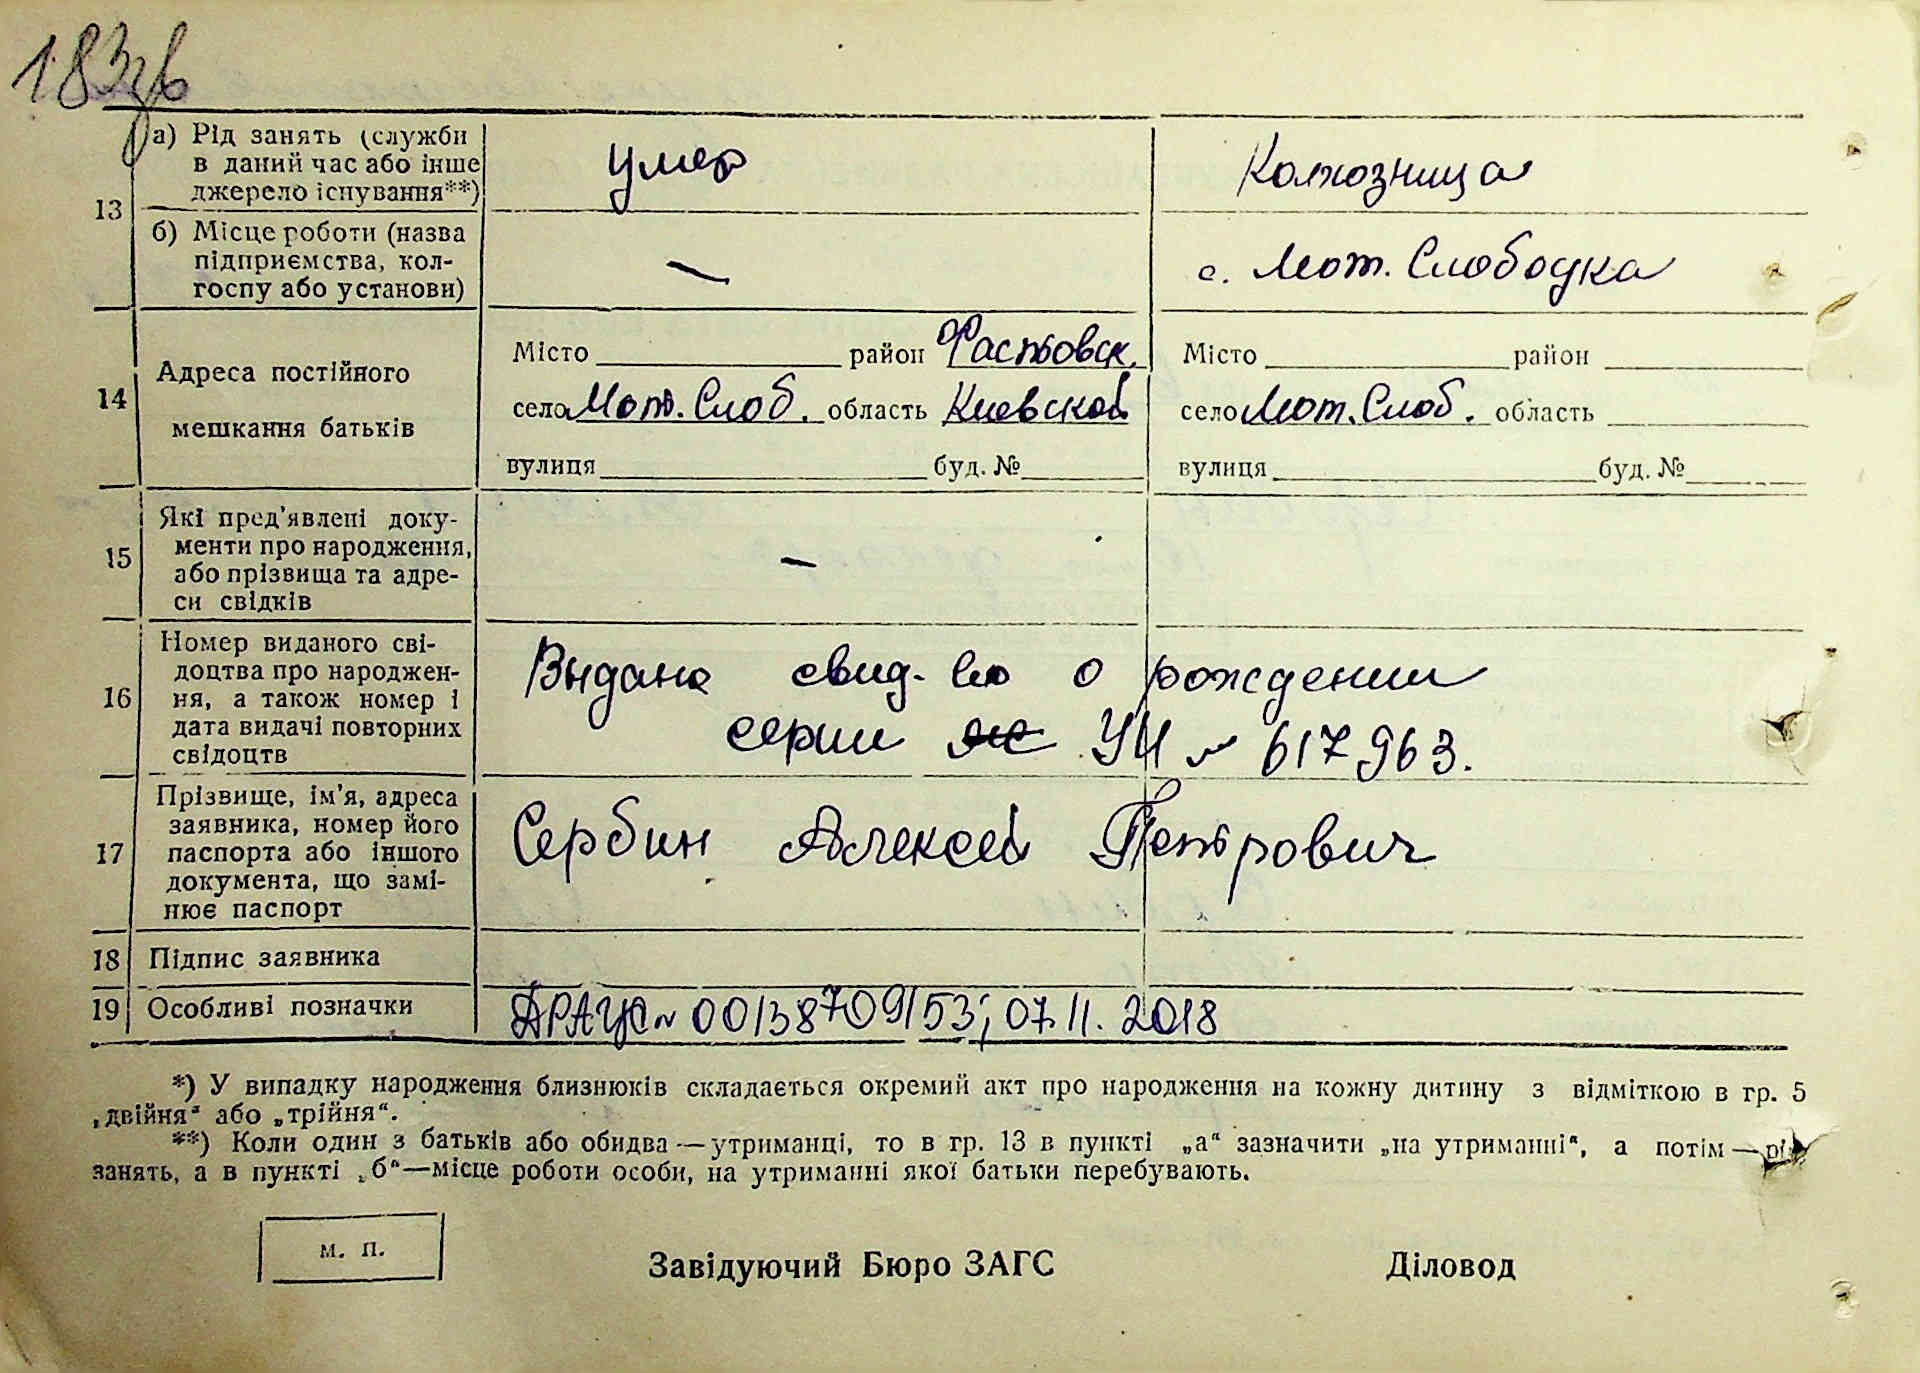 183зв
13
а) Рід занять (служби
в даний час або інше
джерело існування**)
умер
Колхозница
б) Місце роботи (назва
підприємства, кол-
госпу або установи)
—
с. Мот. Слободка
14
Адреса постійного
мешкання батьків
Місто район Фастовск.
село Мот. Слоб. область Киевской
вулиця буд. №
Місто район
село Мот. Слоб. область
вулиця буд. №
15
Які пред'явлені доку-
менти про народження,
або прізвища та адре-
си свідків
—
16
Номер виданого сві-
доцтва про народжен-
ня, а також номер і
дата видачі повторних
свідоцтв
Выдано свид-во о рождении
серии УН № 617963.
17
Прізвище, ім'я, адреса
заявника, номер його
паспорта або іншого
документа, що замі-
нює паспорт
Сербин Алексей Петрович
18 Підпис заявника
19 Особливі позначки
ДРАЦС № 00138709153; 07.11.2018
*) У випадку народження близнюків складається окремий акт про народження на кожну дитину з відміткою в гр. 5
„двійня“ або „трійня“.
**) Коли один з батьків або обидва — утриманці, то в гр. 13 в пункті „а“ зазначити „на утриманні“, а потім —
занять, а в пункті „б“—місце роботи особи, на утриманні якої батьки перебувають.
м. п.
Завідуючий Бюро ЗАГС
Діловод